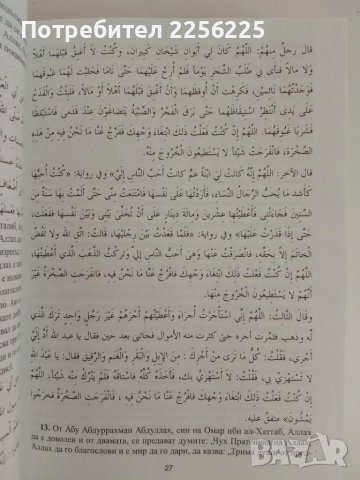 قال رجلٌ منهم: اللَّهُمَّ كَانَ لِي أَبَوَانِ شَيْخَانِ كَبِيرَانِ، وَكُنْتُ لَا أَغْبِقُ قَبْلَهُمَا أَهْلاً
وَلا مالاً فنأى بي طَلَبُ الشَّجَرِ يَوْماً فَلَمْ أُرِحْ عَلَيْهِمَا حَتَّى نَامَا فَحَلَبْت لَهُمَا غَبُوقَهُمَا
فَوَجَدْتُهُمَا نَائِمَيْنِ، فَكَرِهْت أَنْ أُوقِظَهُمَا وَأَنْ أَغْبِقَ قَبْلَهُمَا أَهْلاً أَوْ مَالاً، فَلَبِثْتُ وَالْقَدَحُ
عَلَى يَدِى أَنْتَظِرُ اسْتِيقَاظَهُما حَتَّى بَرَقَ الْفَجْرُ وَالصِّبْيَةُ يَتَضاغَوْنَ عِنْدَ قَدَمى فَاسْتَيْقظَا
فَشَربَا غَبُوقَهُمَا. اللَّهُمَّ إِنْ كُنْتُ فَعَلْتُ ذَلِكَ ابْتِغَاءَ وَجْهِكَ فَفَرِّجْ عَنَّا مَا نَحْنُ فِيهِ مِنْ هَذِهِ
الصَّخْرَة، فانْفَرَجَتْ شَيْئاً لا يَسْتَطيعُونَ الْخُرُوجَ مِنْهُ.
قال الآخر: اللَّهُمَّ إِنَّهُ كَانتْ لِيَ ابْنَةُ عمٍّ كانتْ أَحَبَّ النَّاسِ إِلَيَّ» وفي رواية: «كُنْتُ أُحِبُّهَا
كَأَشد مَا يُحبُّ الرِّجَالُ النِّسَاءِ، فَأَرَدْتُهَا عَلَى نَفْسهَا فَامْتَنَعَتْ مِنِّى حَتَّى أَلَمَّتْ بِهَا سَنَةٌ مِنَ
السِّنِينَ فَجَاءَتْنِى فَأَعْطَيْتُهِا عِشْرينَ وَمِائَةَ دِينَارٍ عَلَى أَنْ تُخَلِّىَ بَيْنِى وَبَيْنَ نَفْسِهَا ففَعَلَت،
حَتَّى إِذَا قَدَرْتُ عَلَيْهَا» وفي رواية: «فَلَمَّا قَعَدْتُ بَيْنَ رِجْليْهَا، قَالتْ: اتَّقِ اللهَ ولا تَفُضَّ
الْخاتَمَ إِلاَّ بِحَقِّهِ، فانْصَرَفْتُ عَنْهَا وَهِىَ أَحَبُّ النَّاسِ إِليَّ وَتركْتُ الذَّهَبَ الَّذي أَعْطَيتُهَا،
اللَّهُمَّ إِنْ كُنْتُ فَعْلتُ ذَلِكَ ابْتِغَاءَ وَجْهِكَ فافْرُجْ عَنَّا مَا نَحْنُ فِيهِ، فانفَرَجَتِ الصَّخْرَةُ غَيْرَ
أَنَّهُمْ لا يَسْتَطِيعُونَ الْخُرُوجَ مِنْهَا.
وقَالَ الثَّالِثُ: اللَّهُمَّ إِنِّي اسْتَأْجَرْتُ أُجرَاءَ وَأَعْطَيْتُهمْ أَجْرَهُمْ غَيْرَ رَجُلٍ وَاحِدٍ تَرَكَ الَّذي
لَّه وذهب فثمَّرت أجره حتى كثرت منه الأموال فجائنى بعد حين فقال يا عبد الله أَدِّ إِلَيَّ
أَجْرِي، فَقُلْتُ: كُلُّ مَا تَرَى منْ أَجْرِكَ: مِنَ الإِبِلِ وَالْبَقَرِ وَالْغَنَمِ وَالرَّقِيق فقال: يا عَبْدَ اللهِ
لا تَسْتهْزئ بي، فَقُلْتُ: لاَ أَسْتَهْزِئُ بِكَ، فَأَخَذَهُ كُلَّهُ فاسْتاقَهُ فَلَمْ يَتْرُكْ مِنْه شَيْئاً، اللَّهُمَّ إِنْ
كُنْتُ فَعَلْتُ ذَلِكَ ابْتغَاءَ وَجْهِكَ فافْرُجْ عَنَّا مَا نَحْنُ فِيهِ، فَانْفَرَجَتِ الصَّخْرَةُ فخرَجُوا
يَمْشُونَ» متفقٌ عليه.
13. От Абу Абдуррахман Абдуллах, син на Омар ибн ал-Хаттаб, Аллах
да е доволен и от двамата, се предават думите: „Чух Пратеника на Аллах,
Аллах да го благослови и с мир да го дари, да казва: „Трима души от пред-
27
BAZAR